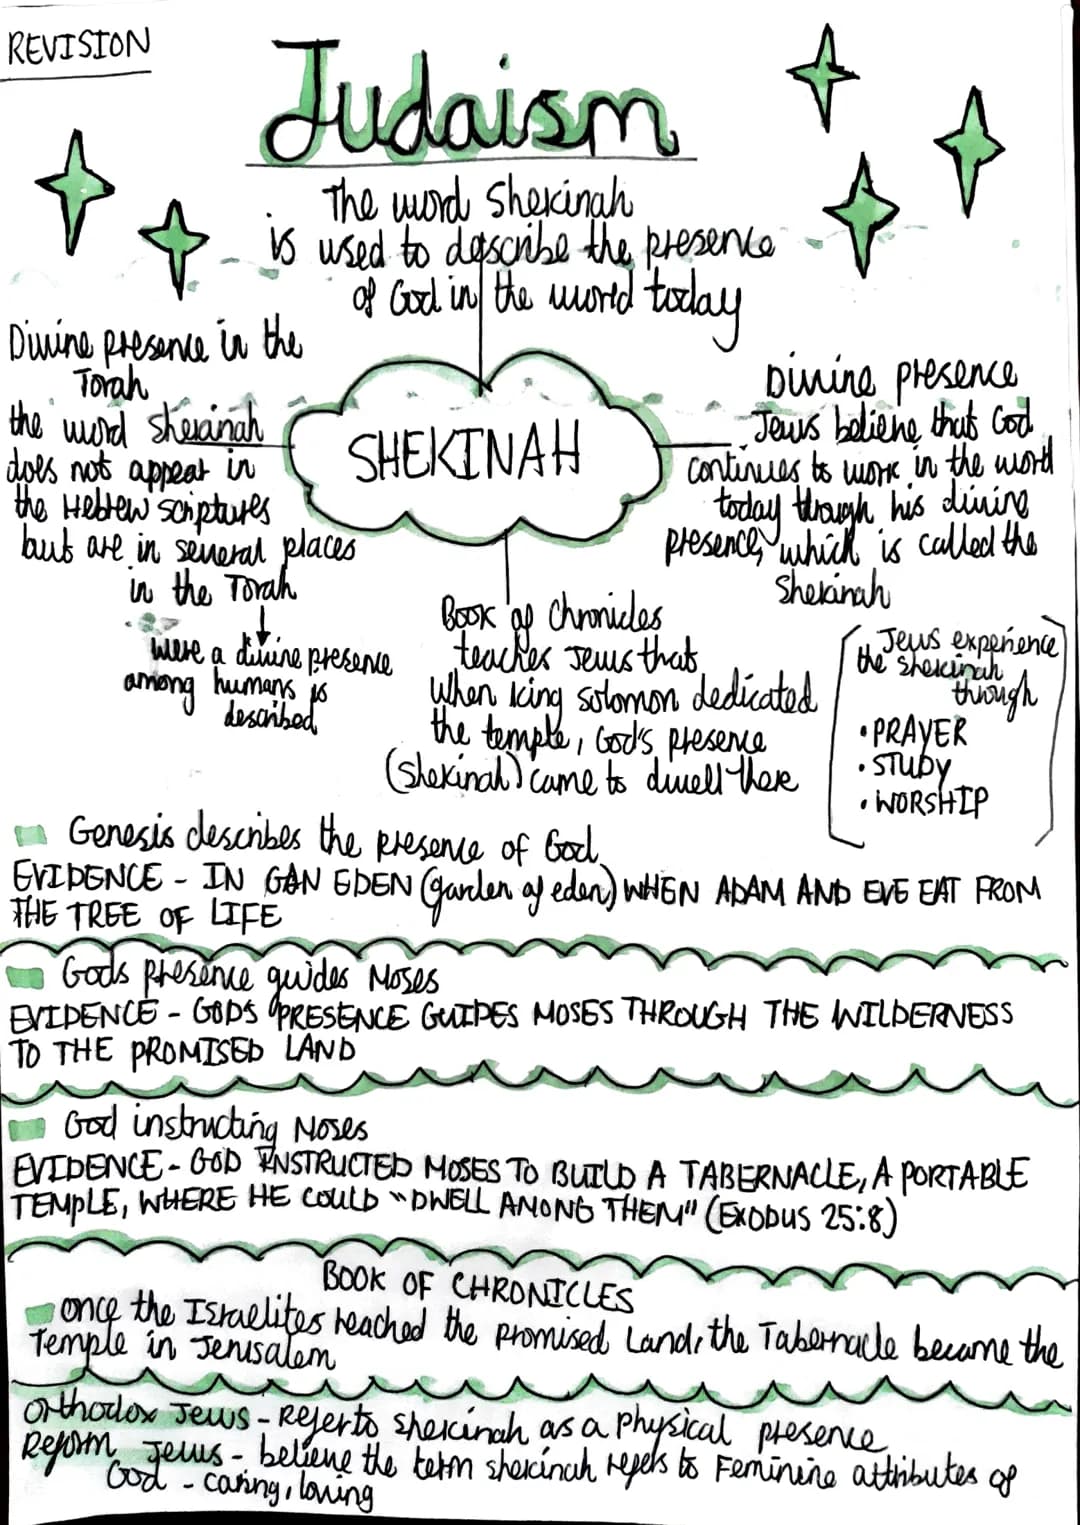 REVISION
Judaism
The word Shekinah
is used to describe the presence
of God in the world today
Divine presence in the
Torah
the word Shekinah
does not appear in
the Hebrew scriptures
but are in several places
in the Torah
Were a divine presence
among humans is
described
SHEKINAH
Divine presence
Jews believe that God
continues to work in the word
today through his divine
presence, which is called the
Shekinah
Book of Chronicles
teaches Jews that
when king solomon dedicated
the temple, God's presence
(Shekinah) came to dwell there
Jews experience
the shekinah
through
• PRAYER
• STUDY
• WORSHIP
Genesis describes the presence of God
EVIDENCE - IN GAN EDEN (garden of eden) WHEN ADAM AND EVE EAT FROM
THE TREE OF LIFE
Gods presence guides Moses
EVIDENCE - GODS PRESENCE GUIDES MOSES THROUGH THE WILDERNESS
TO THE PROMISED LAND
God instructing Moses
EVIDENCE - GOD INSTRUCTED MOSES TO BUILD A TABERNACLE, A PORTABLE
TEMPLE, WHERE HE COULD "DWELL AMONG THEM" (EXODUS 25:8)
BOOK OF CHRONICLES
once the Israelites reached the promised Land, the Tabernacle became the
Temple in Jerusalem
Orthodox Jews - Refer to shekinah as a physical presence
Reform Jews - believe the term shekinah refers to Feminine attributes of
God - caring, loving